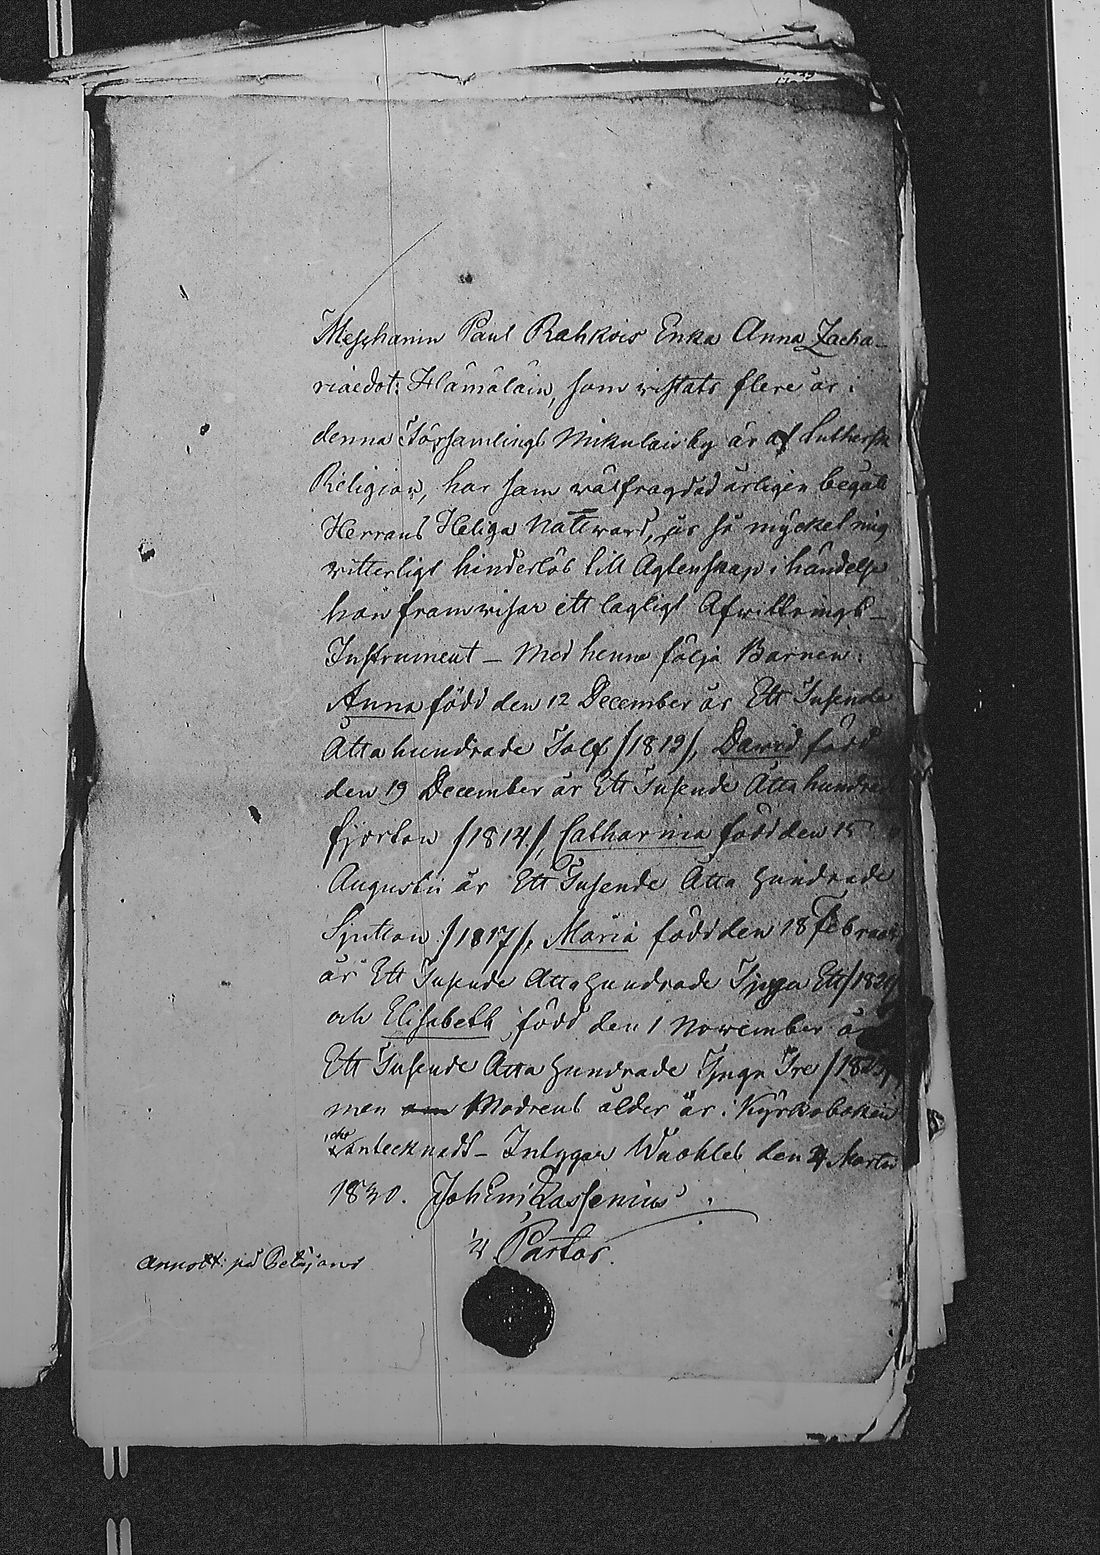 Meschanin Paul Rahkois Enka Anna Zacha-
riaedot: Hämäläin, som wistats flere år i
denna Församlings Nikulais by är af Luthersk
Religion, har som wälfrägdad årligen begått
Herrans Heliga Nattward, är så mycket mig
witterligt hinderlös till Ägtenskap i händelse
hon framwisar ett lagligt Afwittrings-
Instrument – Med henne följa Barnen:
Anna född den 12 December år Ett Tusende
Åtta hundrade Tolf /1812/, Dawid född
den 19 December år Ett Tusende Åtta hundrad
fjorton /1814/, Catharina född den 15
Augustii år Ett Tusende Åtta Hundrade
Sjutton /1817/, Maria född den 18 Februarii
år Ett Tusende Åtta Hundrade Tjugu Ett /1821/
och Elisabeth född den 1 November år
Ett Tusende Åtta Hundrade Tjugu Tre /1823/,
men Modrens ålder är i Kyrkoboken
icke antecknadt – Intygar Wuohles den 4 Martii
1830. Joh Em: Zassenius
V. Pastor.
Annott: på Petäjans